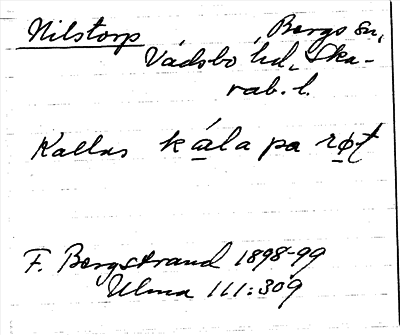 Nilstorp Bergs sn,
Vadsbo hd, Ska-
rab. l.
Kallas kálaparǿt
F. Bergstrand 1898-99
Ulma 111:309